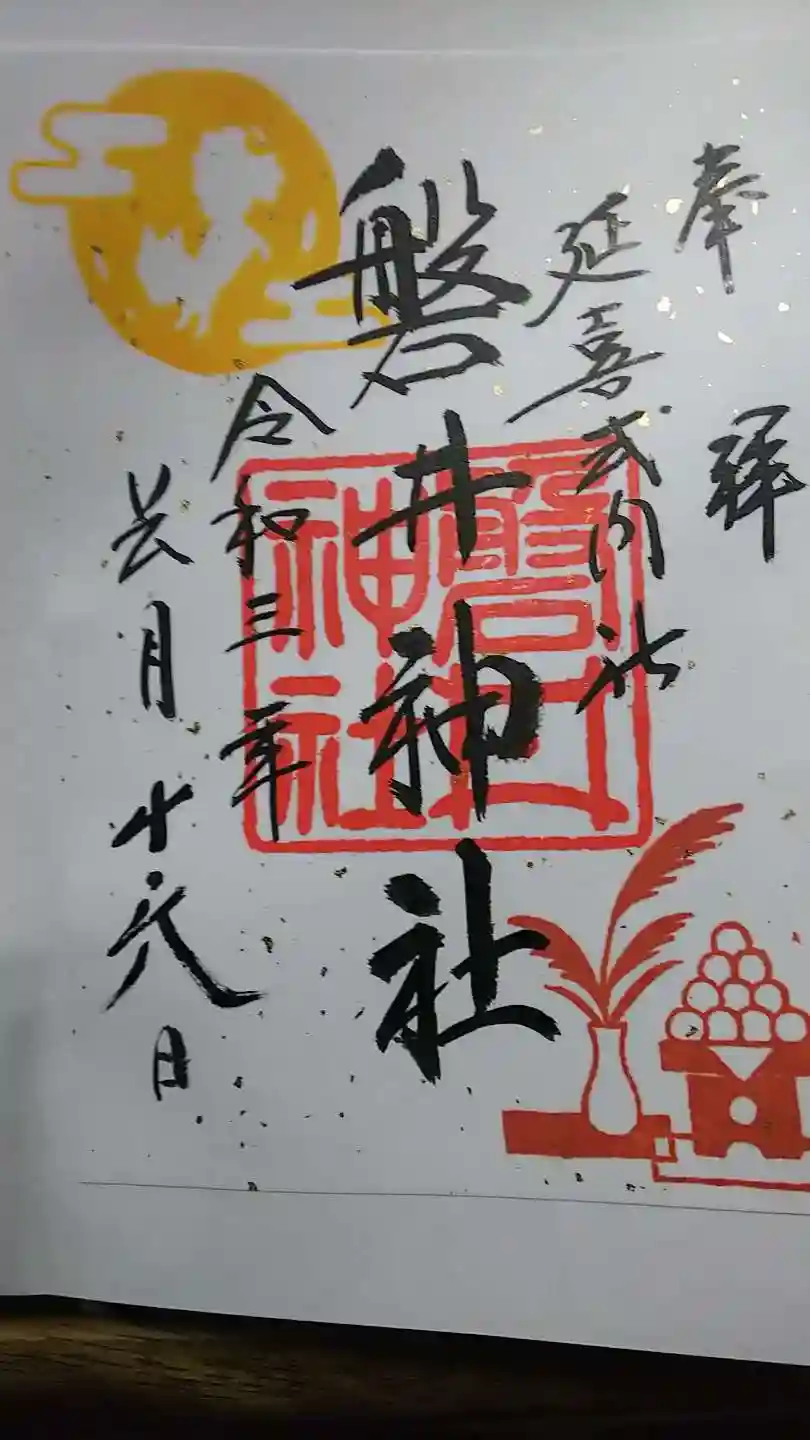 奉拝
延喜式内社
磐井神社
令和三年
長月十六日
磐井
神社